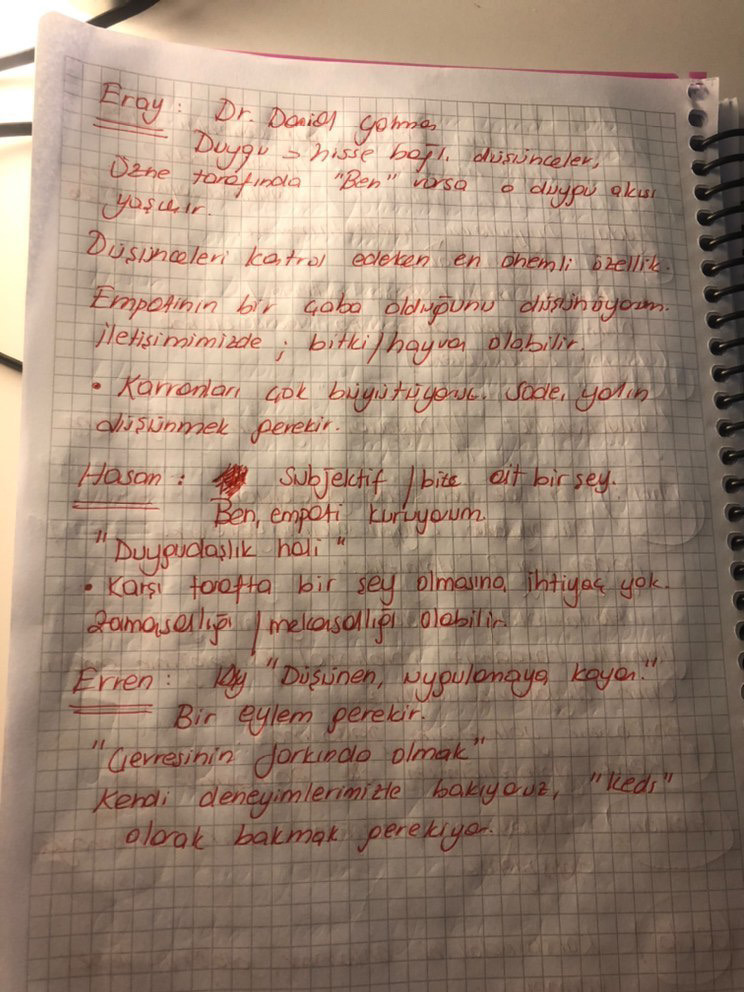 Eray : Dr. Daniel Golman
Duygu → hisse bağlı düşünceler,
Özne tarafında "Ben" varsa o duygu akışı
yaşanır.
Düşünceleri kotrol ederken en önemli özellik.
Empatinin bir çaba olduğunu düşünüyorum.
iletişimimizde ; bitki/hayvan olabilir.
• Kavramları çok büyütüyoruz. Sade, yalın
düşünmek gerekir.
Hasan : subjektif / bize ait bir şey.
Ben, empati kuruyorum.
"Duygudaşlık hali"
• Karşı tarafta bir şey olmasına ihtiyaç yok.
zamansallığı / mekansallığı olabilir.
Evren : "Düşünen, uygulamaya koyan."
Bir eylem gerekir.
"Çevresinin farkında olmak"
Kendi deneyimlerimizle bakıyoruz, "kedi"
olarak bakmak gerekiyor.